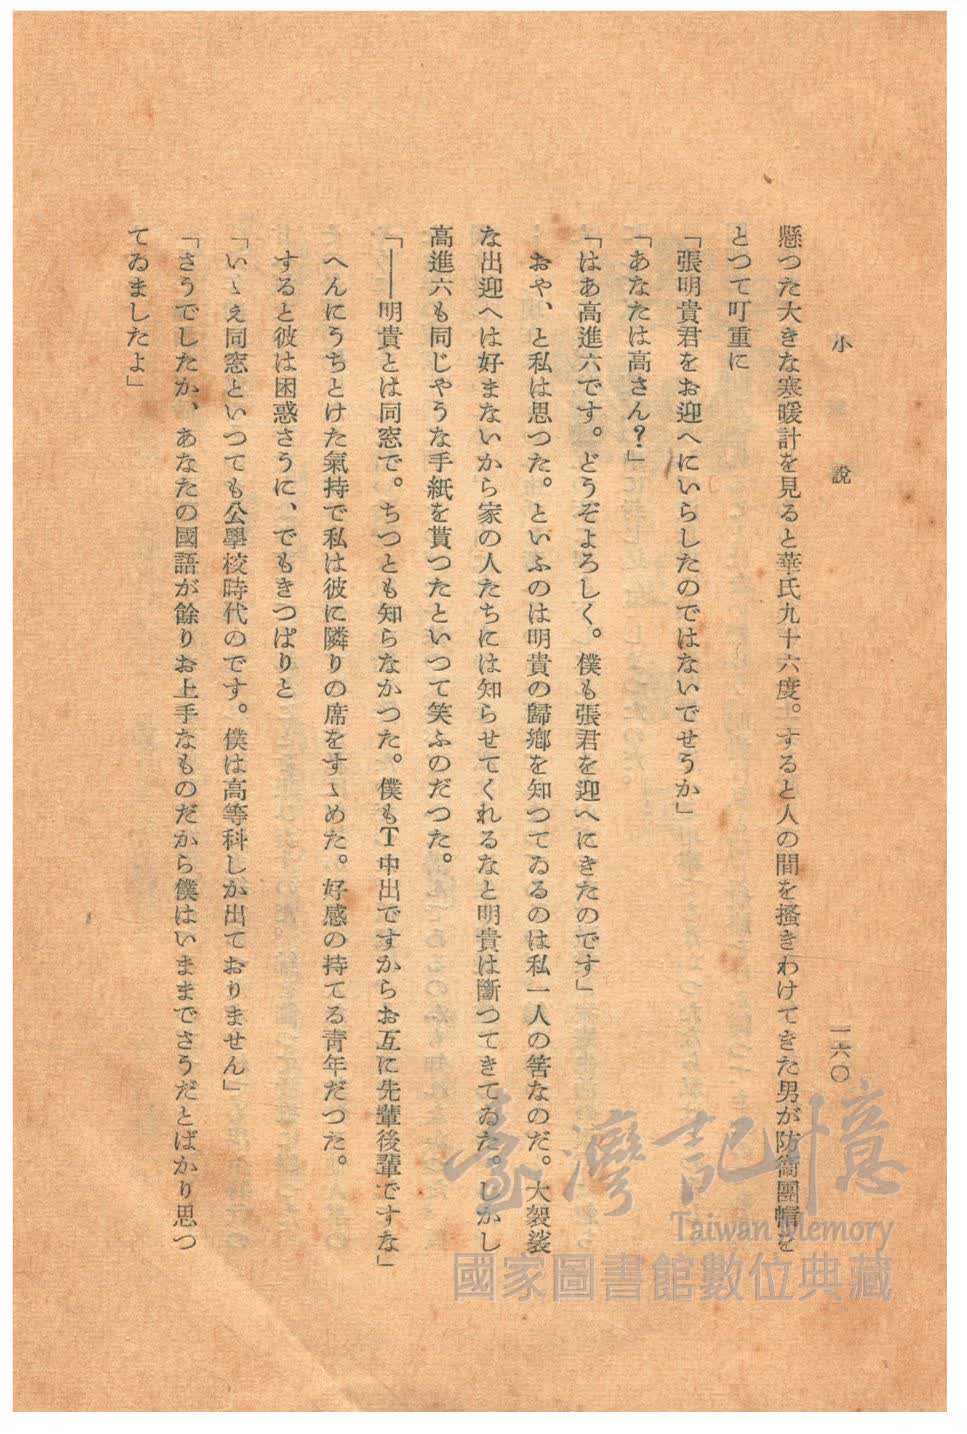 小說
一六〇
懸つた大きな寒暖計を見ると華氏九十六度。すると人の間を搔きわけてきた男が防衞團帽を
とつて叮重に
「張明貴君をお迎へにいらしたのではないでせうか」
「あなたは高さん？」
「はあ高進六です。どうぞよろしく。僕も張君を迎へにきたのです」
おや、と私は思つた。といふのは明貴の歸鄕を知つてゐるのは私一人の筈なのだ。大袈裟
な出迎へは好まないから家の人たちには知らせてくれるなと明貴は斷つてきてゐた。しかし
高進六も同じやうな手紙を貰つたといつて笑ふのだつた。
「――明貴とは同窓で。ちつとも知らなかつた。僕もT中出ですからお互に先輩後輩ですな」
へんにうちとけた氣持で私は彼に隣りの席をすゝめた。好感の持てる靑年だつた。
すると彼は困惑さうに、でもきつぱりと
「いゝえ同窓といつても公學校時代のです。僕は高等科しか出ておりません」
「さうでしたか、あなたの國語が餘りお上手なものだから僕はいままでさうだとばかり思つ
てゐましたよ」
臺灣記憶
Taiwan Memory
國家圖書館數位典藏